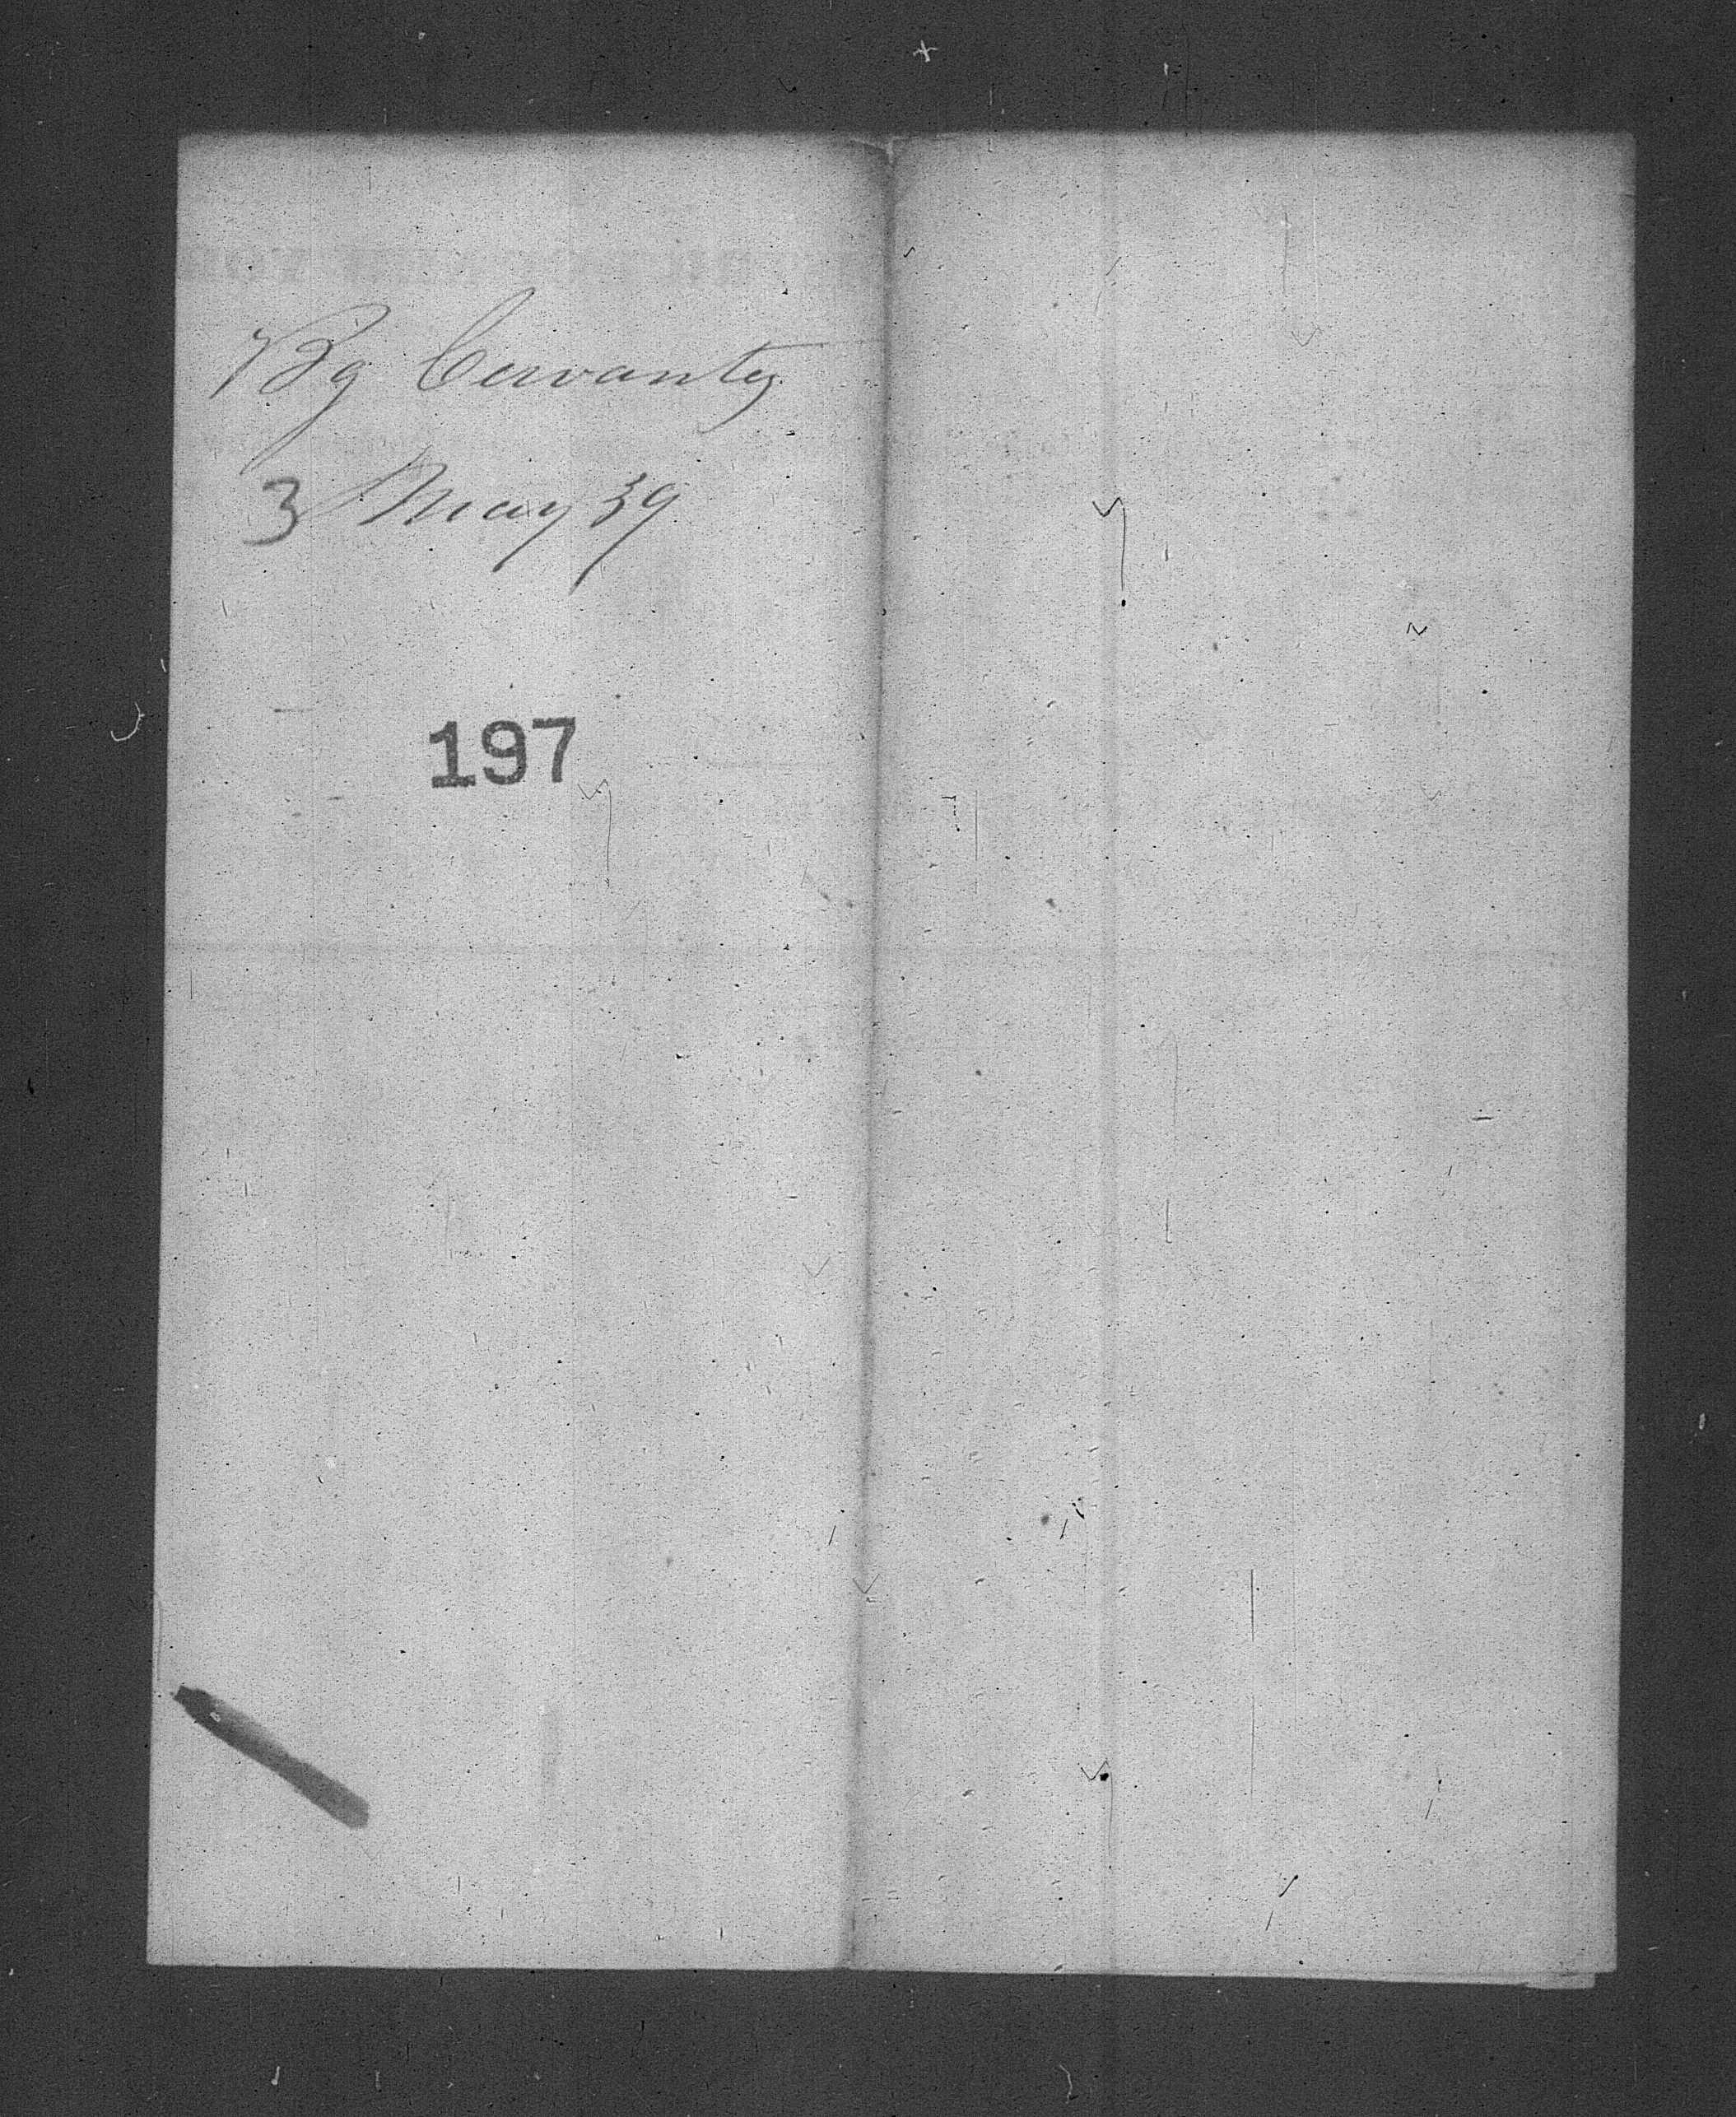 Bg Cervantes
3 May 39
197